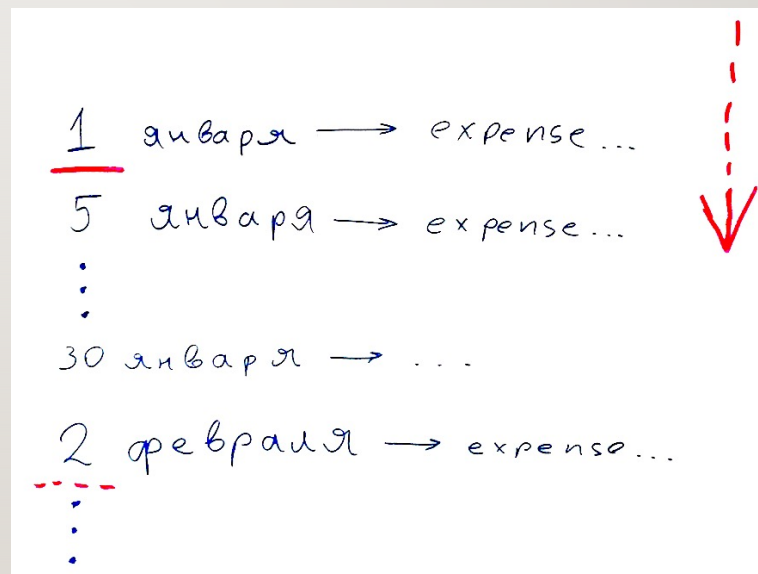 1 января → expense...
5 января → expense...
30 января → ...
2 февраля → expense...